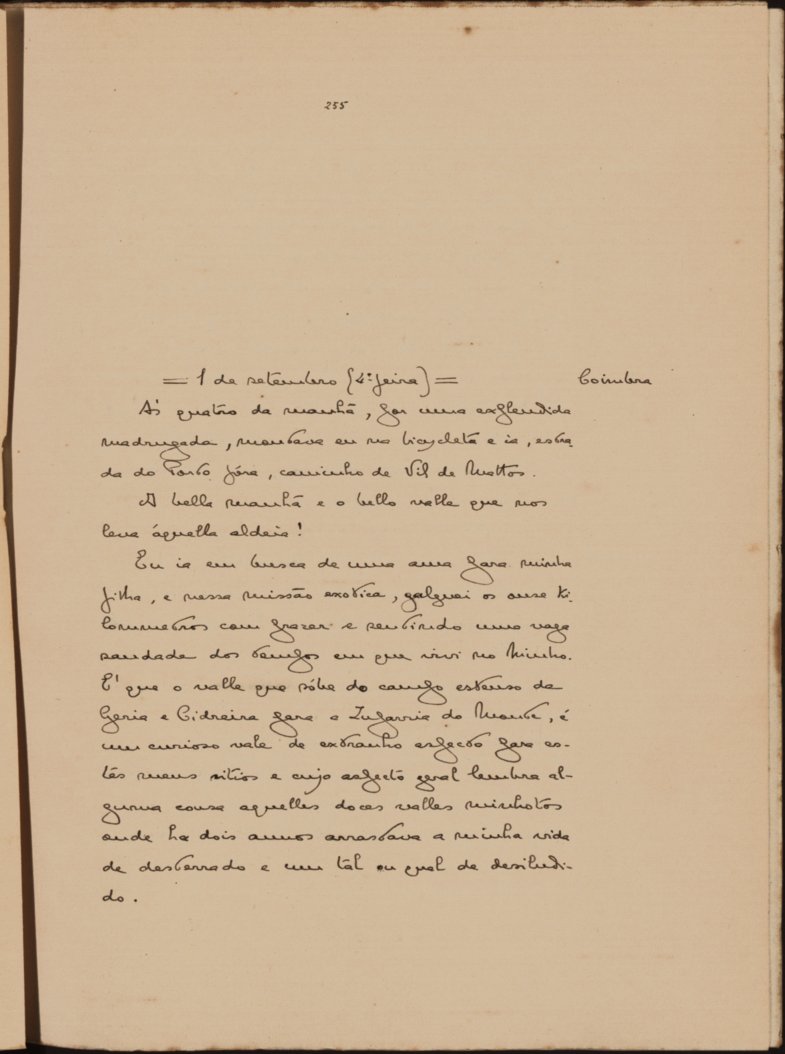 255
= 1 de setembro (4ª feira) = Coimbra
Ás quatro da manhã, por uma explendida
madrugada, montava eu na bicycleta e ia, estra-
da do Porto fóra, caminho de Vil de Mattos.
A bella manhã e o bello valle que nos
leva áquella aldeia!
Eu ia em busca de uma ama para minha
filha, e nessa missão exotica, galguei os onze ki-
lommetros com prazer e sentindo uma vaga
saudade dos tempos em que vivi no Minho.
E' que o valle que sóbe do campo extenso da
Geria e Cidreira para a Zuparria do Monte, é
um curioso vale de extranho aspecto para es-
tes meus sitios e cujo aspecto geral lembra al-
guma cousa aquelles doces valles minhotos
onde ha dois annos arrastava a minha vida
de desterrado e um tal ou qual de desiludi-
do.